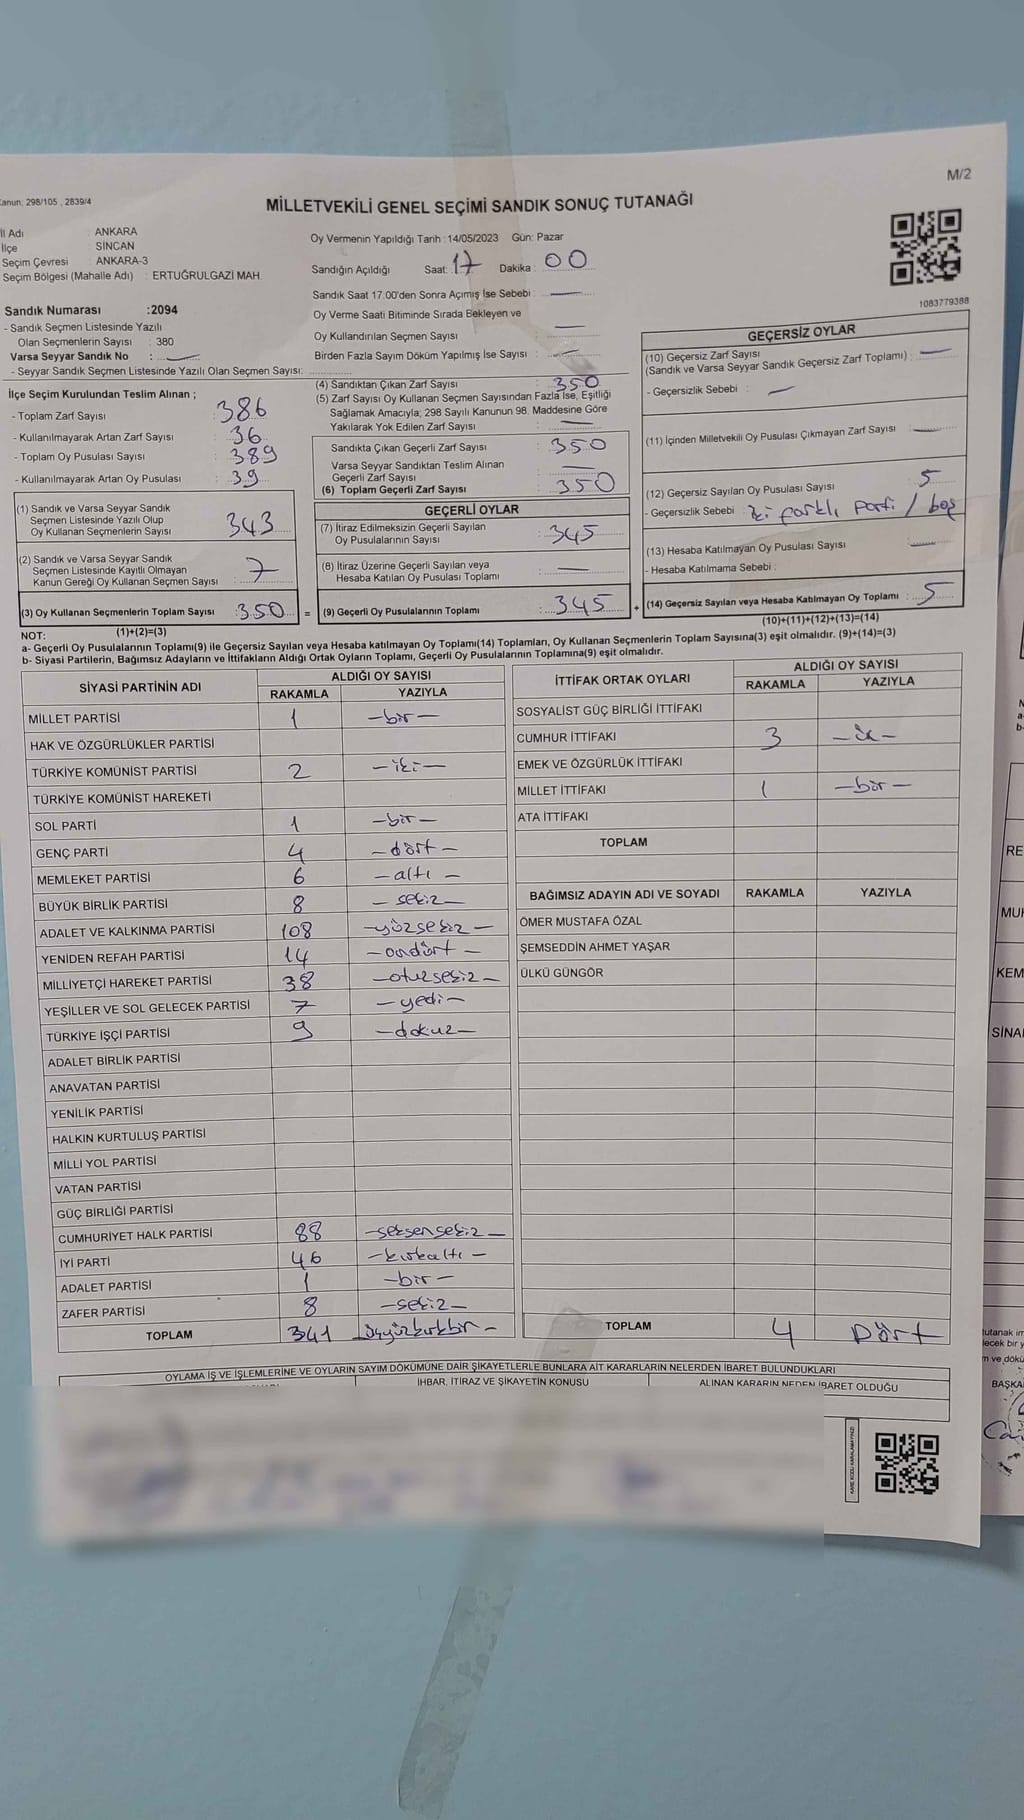 M/2
Kanun; 298/105 , 2839/4
MİLLETVEKİLİ GENEL SEÇİMİ SANDIK SONUÇ TUTANAĞI
İl Adı : ANKARA
İlçe : SİNCAN
Seçim Çevresi : ANKARA-3
Seçim Bölgesi (Mahalle Adı) : ERTUĞRULGAZİ MAH.
Sandık Numarası :2094
- Sandık Seçmen Listesinde Yazılı
Olan Seçmenlerin Sayısı : 380
Varsa Seyyar Sandık No : —
- Seyyar Sandık Seçmen Listesinde Yazılı Olan Seçmen Sayısı:
Oy Vermenin Yapıldığı Tarih :14/05/2023 Gün: Pazar
Sandığın Açıldığı Saat: 17 Dakika : 00
Sandık Saat 17.00'den Sonra Açımış İse Sebebi : —
Oy Verme Saati Bitiminde Sırada Bekleyen ve
Oy Kullandırılan Seçmen Sayısı : —
Birden Fazla Sayım Döküm Yapılmış İse Sayısı : —
1083779388
İlçe Seçim Kurulundan Teslim Alınan ;
- Toplam Zarf Sayısı : 386
- Kullanılmayarak Artan Zarf Sayısı : 36
- Toplam Oy Pusulası Sayısı : 389
- Kullanılmayarak Artan Oy Pusulası : 39
(1) Sandık ve Varsa Seyyar Sandık
Seçmen Listesinde Yazılı Olup
Oy Kullanan Seçmenlerin Sayısı : 343
(2) Sandık ve Varsa Seyyar Sandık
Seçmen Listesinde Kayıtlı Olmayan
Kanun Gereği Oy Kullanan Seçmen Sayısı : 7
(3) Oy Kullanan Seçmenlerin Toplam Sayısı : 350
(4) Sandıktan Çıkan Zarf Sayısı : 350
(5) Zarf Sayısı Oy Kullanan Seçmen Sayısından Fazla İse, Eşitliği
Sağlamak Amacıyla; 298 Sayılı Kanunun 98. Maddesine Göre
Yakılarak Yok Edilen Zarf Sayısı : —
Sandıkta Çıkan Geçerli Zarf Sayısı : 350
Varsa Seyyar Sandıktan Teslim Alınan
Geçerli Zarf Sayısı : —
(6) Toplam Geçerli Zarf Sayısı : 350
GEÇERLİ OYLAR
(7) İtiraz Edilmeksizin Geçerli Sayılan
Oy Pusulalarının Sayısı : 345
(8) İtiraz Üzerine Geçerli Sayılan veya
Hesaba Katılan Oy Pusulası Toplamı : —
= (9) Geçerli Oy Pusulalarının Toplamı : 345
GEÇERSİZ OYLAR
(10) Geçersiz Zarf Sayısı
(Sandık ve Varsa Seyyar Sandık Geçersiz Zarf Toplamı) : —
- Geçersizlik Sebebi : —
(11) İçinden Milletvekili Oy Pusulası Çıkmayan Zarf Sayısı : —
(12) Geçersiz Sayılan Oy Pusulası Sayısı : 5
- Geçersizlik Sebebi : iki farklı parti / boş
(13) Hesaba Katılmayan Oy Pusulası Sayısı : —
- Hesaba Katılmama Sebebi :
+ (14) Geçersiz Sayılan veya Hesaba Katılmayan Oy Toplamı : 5
NOT: (1)+(2)=(3)
(10)+(11)+(12)+(13)=(14)
a- Geçerli Oy Pusulalarının Toplamı(9) ile Geçersiz Sayılan veya Hesaba katılmayan Oy Toplamı(14) Toplamları, Oy Kullanan Seçmenlerin Toplam Sayısına(3) eşit olmalıdır. (9)+(14)=(3)
b- Siyasi Partilerin, Bağımsız Adayların ve İttifakların Aldığı Ortak Oyların Toplamı, Geçerli Oy Pusulalarının Toplamına(9) eşit olmalıdır.
SİYASİ PARTİNİN ADI ALDIĞI OY SAYISI
RAKAMLA YAZIYLA
MİLLET PARTİSİ 1 —bir—
HAK VE ÖZGÜRLÜKLER PARTİSİ
TÜRKİYE KOMÜNİST PARTİSİ 2 —iki—
TÜRKİYE KOMÜNİST HAREKETİ
SOL PARTİ 1 —bir—
GENÇ PARTİ 4 —dört—
MEMLEKET PARTİSİ 6 —altı—
BÜYÜK BİRLİK PARTİSİ 8 —sekiz—
ADALET VE KALKINMA PARTİSİ 108 —yüzsekiz—
YENİDEN REFAH PARTİSİ 14 —ondört—
MİLLİYETÇİ HAREKET PARTİSİ 38 —otuzsekiz—
YEŞİLLER VE SOL GELECEK PARTİSİ 7 —yedi—
TÜRKİYE İŞÇİ PARTİSİ 9 —dokuz—
ADALET BİRLİK PARTİSİ
ANAVATAN PARTİSİ
YENİLİK PARTİSİ
HALKIN KURTULUŞ PARTİSİ
MİLLİ YOL PARTİSİ
VATAN PARTİSİ
GÜÇ BİRLİĞİ PARTİSİ
CUMHURİYET HALK PARTİSİ 88 —seksensekiz—
İYİ PARTİ 46 —kırkaltı—
ADALET PARTİSİ 1 —bir—
ZAFER PARTİSİ 8 —sekiz—
TOPLAM 341 üçyüzkırkbir—
İTTİFAK ORTAK OYLARI ALDIĞI OY SAYISI
RAKAMLA YAZIYLA
SOSYALİST GÜÇ BİRLİĞİ İTTİFAKI
CUMHUR İTTİFAKI 3 —üç—
EMEK VE ÖZGÜRLÜK İTTİFAKI
MİLLET İTTİFAKI 1 —bir—
ATA İTTİFAKI
TOPLAM
BAĞIMSIZ ADAYIN ADI VE SOYADI RAKAMLA YAZIYLA
ÖMER MUSTAFA ÖZAL
ŞEMSEDDİN AHMET YAŞAR
ÜLKÜ GÜNGÖR
TOPLAM 4 Dört
OYLAMA İŞ VE İŞLEMLERİNE VE OYLARIN SAYIM DÖKÜMÜNE DAİR ŞİKAYETLERLE BUNLARA AİT KARARLARIN NELERDEN İBARET BULUNDUKLARI
İHBAR, İTİRAZ VE ŞİKAYETİN KONUSU ALINAN KARARIN NEDEN İBARET OLDUĞU
KARE KODU KARALAMAYINIZ!
RE
MUH
KEM
SİNA
tutanak im
lecek bir y
m ve dökü
BAŞKA